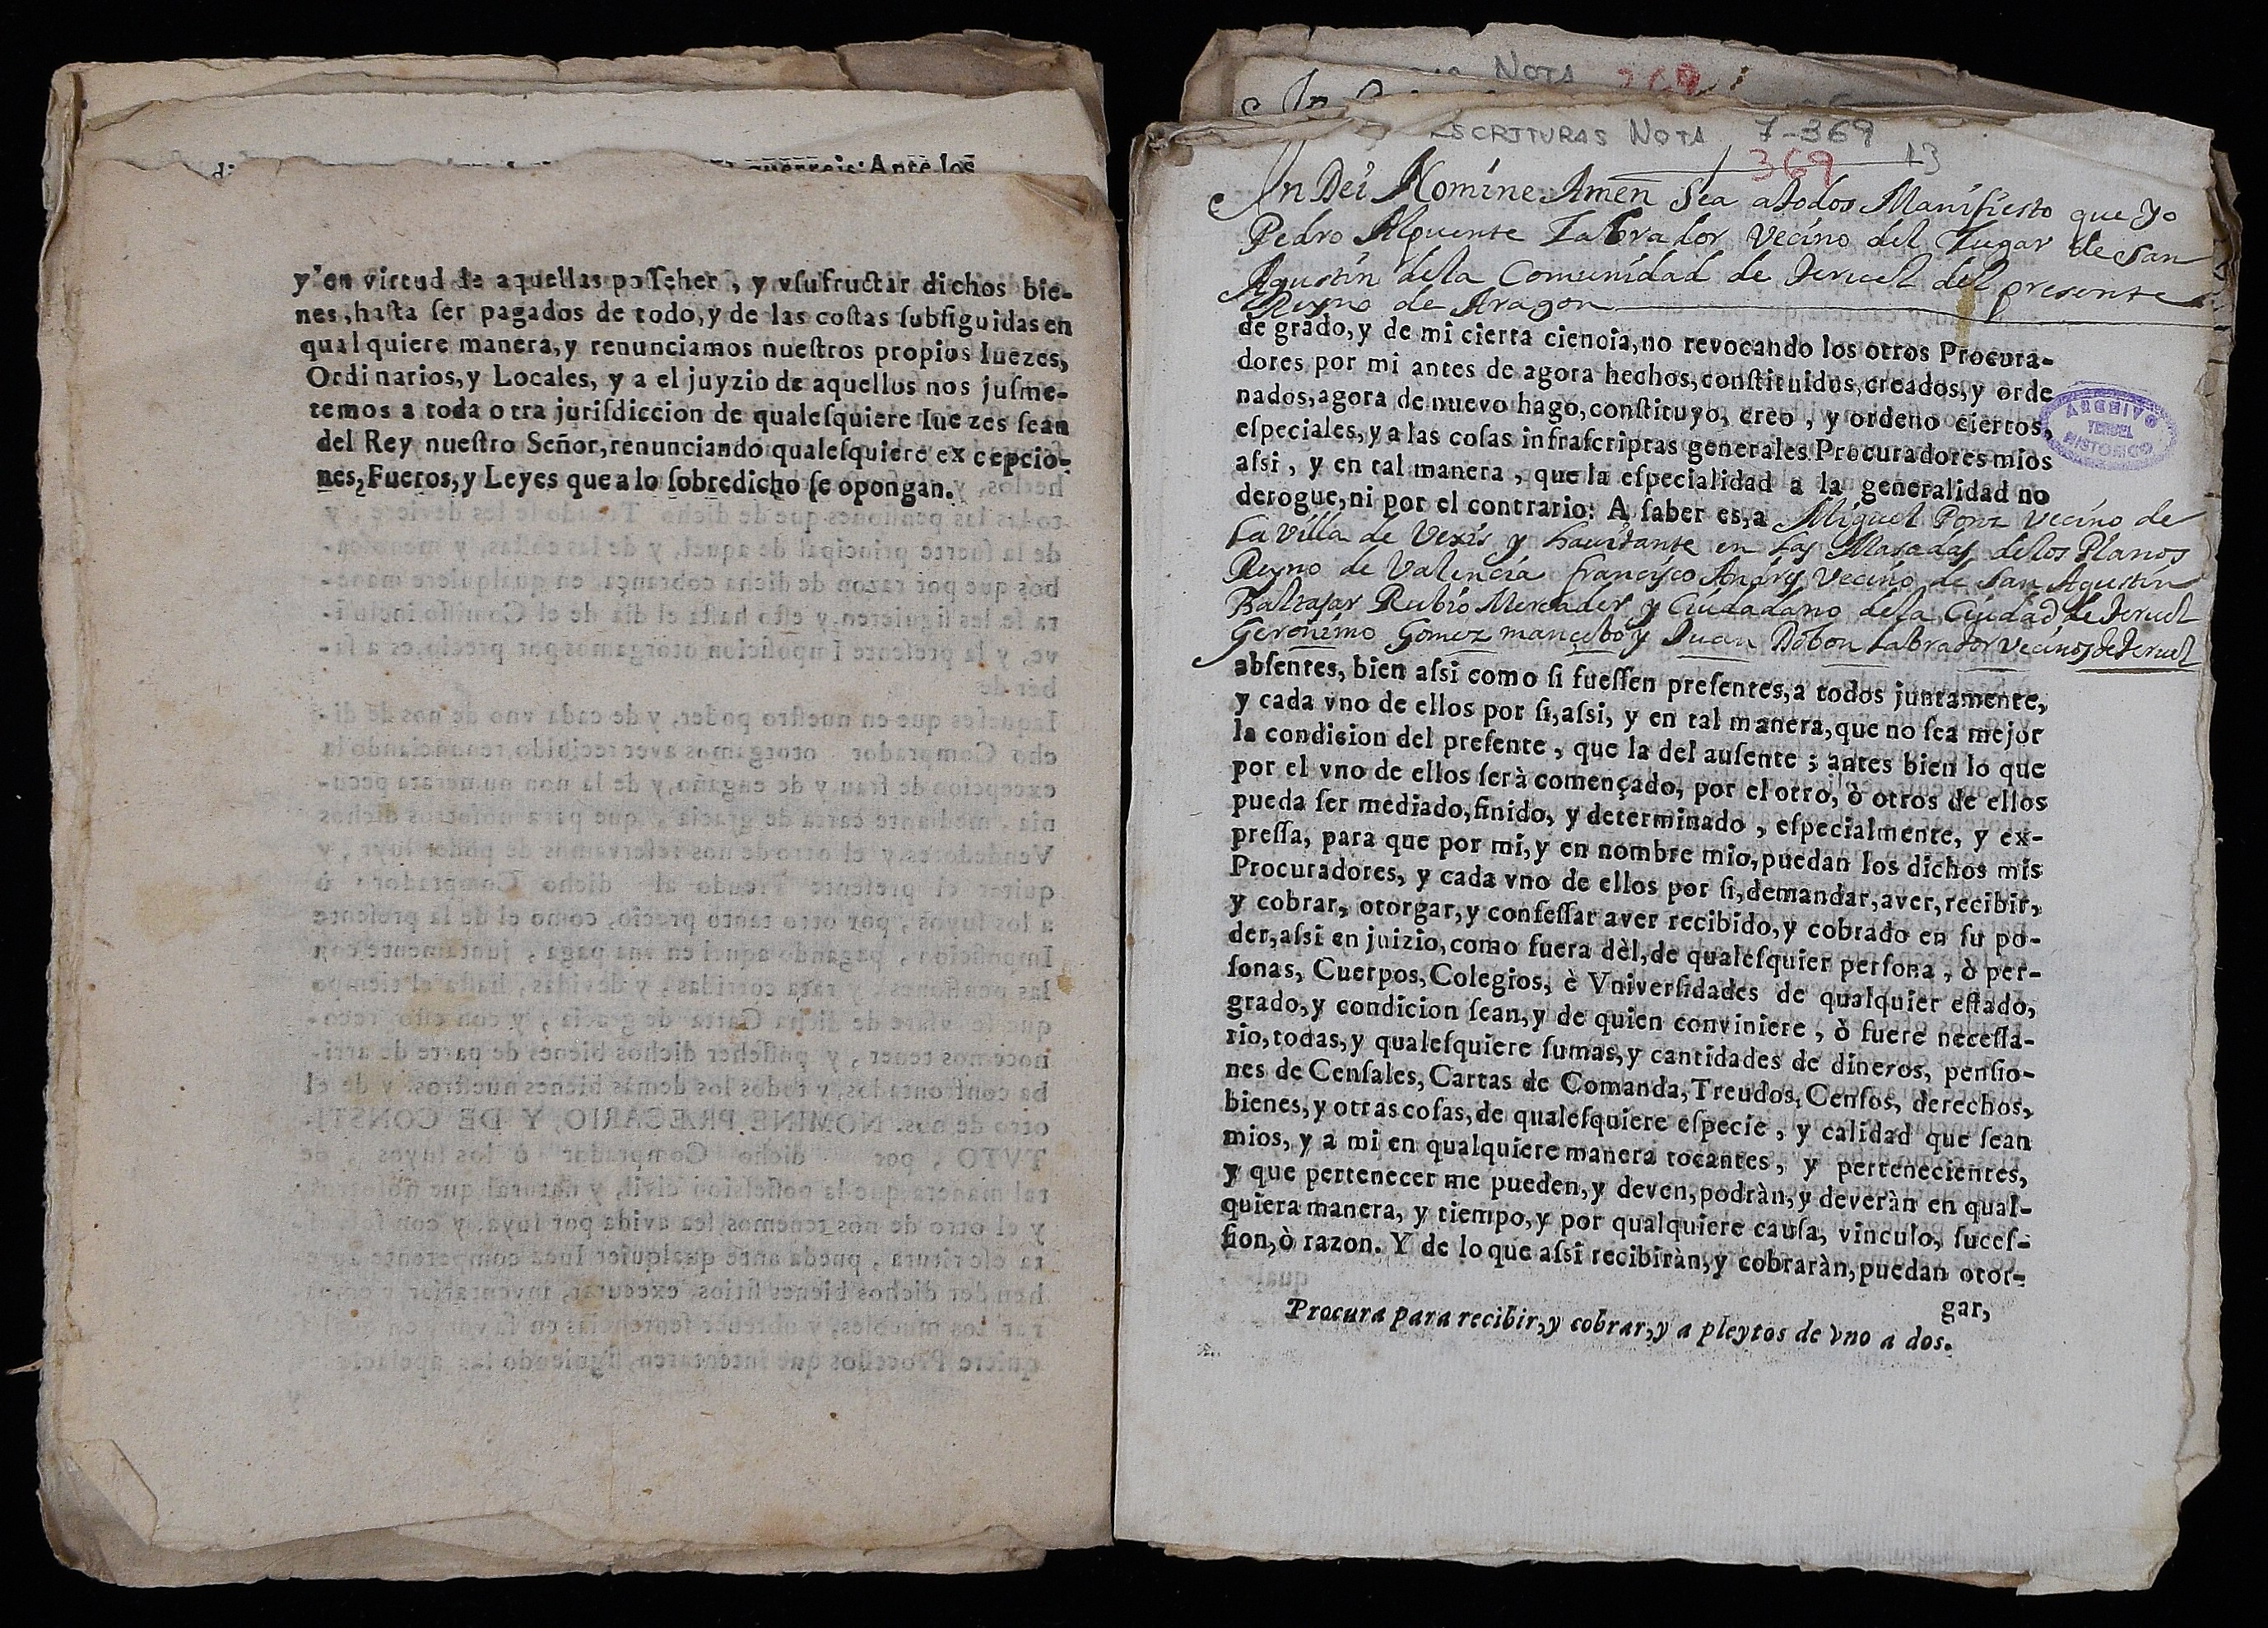 y en virtud de aquellas poſſeher, y vſufructar dichos bie-
nes, haſta ſer pagados de todo, y de las coſtas ſubſiguidas en
qualquiere manera, y renunciamos nueſtros propios Iuezes,
Ordinarios, y Locales, y a el juyzio de aquellos nos juſme-
temos a toda otra juriſdiccion de qualeſquiere Iuezes ſean
del Rey nueſtro Señor, renunciando qualeſquiere excepcio-
nes, Fueros, y Leyes que a lo ſobredicho ſe opongan.
ESCRITURAS NOTA 7-369
369 13
In Dei Nomine Amen Sea atodos Manifiesto que Yo
Pedro Alpuente Labrador Vecino del Lugar de San
Agustin dela Comunidad de Teruel del presente
Reyno de Aragon
de grado, y de mi cierta ciencia, no revocando los otros Procura-
dores por mi antes de agora hechos, conſtituidos, creados, y orde
nados, agora de nuevo hago, conſtituyo, creo, y ordeno ciertos,
eſpeciales, y a las coſas infraſcriptas generales Procuradores mios
aſsi, y en tal manera, que la eſpecialidad a la generalidad no
derogue, ni por el contrario: A ſaber es, a Miguel Ponz Vecino de
La Villa de Vexis y hauitante en Las Masadas delos Planos
Reyno de Valencia francisco Andres Vecino de San Agustin
Baltasar Rubio Mercader y Ciudadano dela Ciudad de Teruel
Geronimo Gomez mancebo y Juan Dobon Labrador vecinos de Teruel
abſentes, bien aſsi como ſi fueſſen preſentes, a todos juntamente,
y cada vno de ellos por ſi, aſsi, y en tal manera, que no ſea mejor
la condicion del preſente, que la del auſente; antes bien lo que
por el vno de ellos ſerà començado, por el otro, ò otros de ellos
pueda ſer mediado, finido, y determinado, eſpecialmente, y ex-
preſſa, para que por mi, y en nombre mio, puedan los dichos mis
Procuradores, y cada vno de ellos por ſi, demandar, aver, recibir,
y cobrar, otorgar, y confeſſar aver recibido, y cobrado en ſu po-
der, aſsi en juizio, como fuera dèl, de qualeſquier perſona, ò per-
ſonas, Cuerpos, Colegios, è Vniverſidades de qualquier eſtado,
grado, y condicion ſean, y de quien conviniere, ò fuere neceſſa-
rio, todas, y qualeſquiere ſumas, y cantidades de dineros, penſio-
nes de Cenſales, Cartas de Comanda, Treudos, Cenſos, derechos,
bienes, y otras coſas, de qualeſquiere eſpecie, y calidad que ſean
mios, y a mi en qualquiere manera tocantes, y pertenecientes,
y que pertenecer me pueden, y deven, podràn, y deveràn en qual-
quiera manera, y tiempo, y por qualquiere cauſa, vinculo, ſuceſ-
ſion, ò razon. Y de lo que aſsi recibiràn, y cobraràn, puedan otor-
gar,
Procura para recibir, y cobrar, y a pleytos de vno a dos.